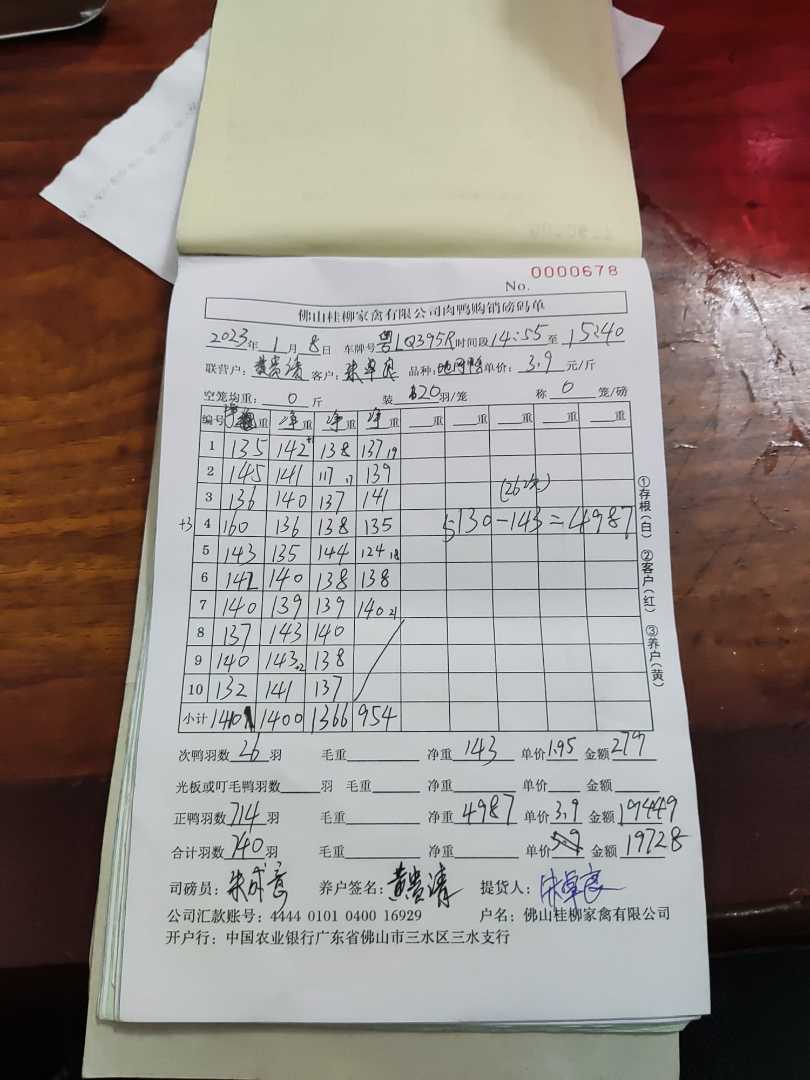 No. 0000678
佛山桂柳家禽有限公司肉鸭购销磅码单
2023年 1月 8日 车牌号 粤LQ395R 时间段 14:55 至 15:40
联营户: 黄贵清 客户: 品种: 单价: 3.9 元/斤
空笼均重: 0 斤 装 20 羽/笼 称 0 笼/磅
编号 净重 净重 净重 净重 重 重 重 重 重
1 135 142 138 137 19
2 145 141 117 17 139
3 136 140 137 141
+3 4 160 136 138 135
5 143 135 144 124 18
6 142 140 138 138
7 140 139 139 140 21
8 137 143 140
9 140 143 +2 138
10 132 141 137
小计 1410 1400 1366 954
(262元)
5130-143=4987
①存根(白) ②客户(红) ③养户(黄)
次鸭羽数 26 羽 毛重 净重 143 单价 1.95 金额 279
光板或叮毛鸭羽数 羽 毛重 净重 单价 金额
正鸭羽数 714 羽 毛重 净重 4987 单价 3.9 金额 19449
合计羽数 740 羽 毛重 净重 单价 金额 19728
司磅员: 朱成意 养户签名: 黄贵清 提货人:
公司汇款账号: 4444 0101 0400 16929 户名: 佛山桂柳家禽有限公司
开户行: 中国农业银行广东省佛山市三水区三水支行